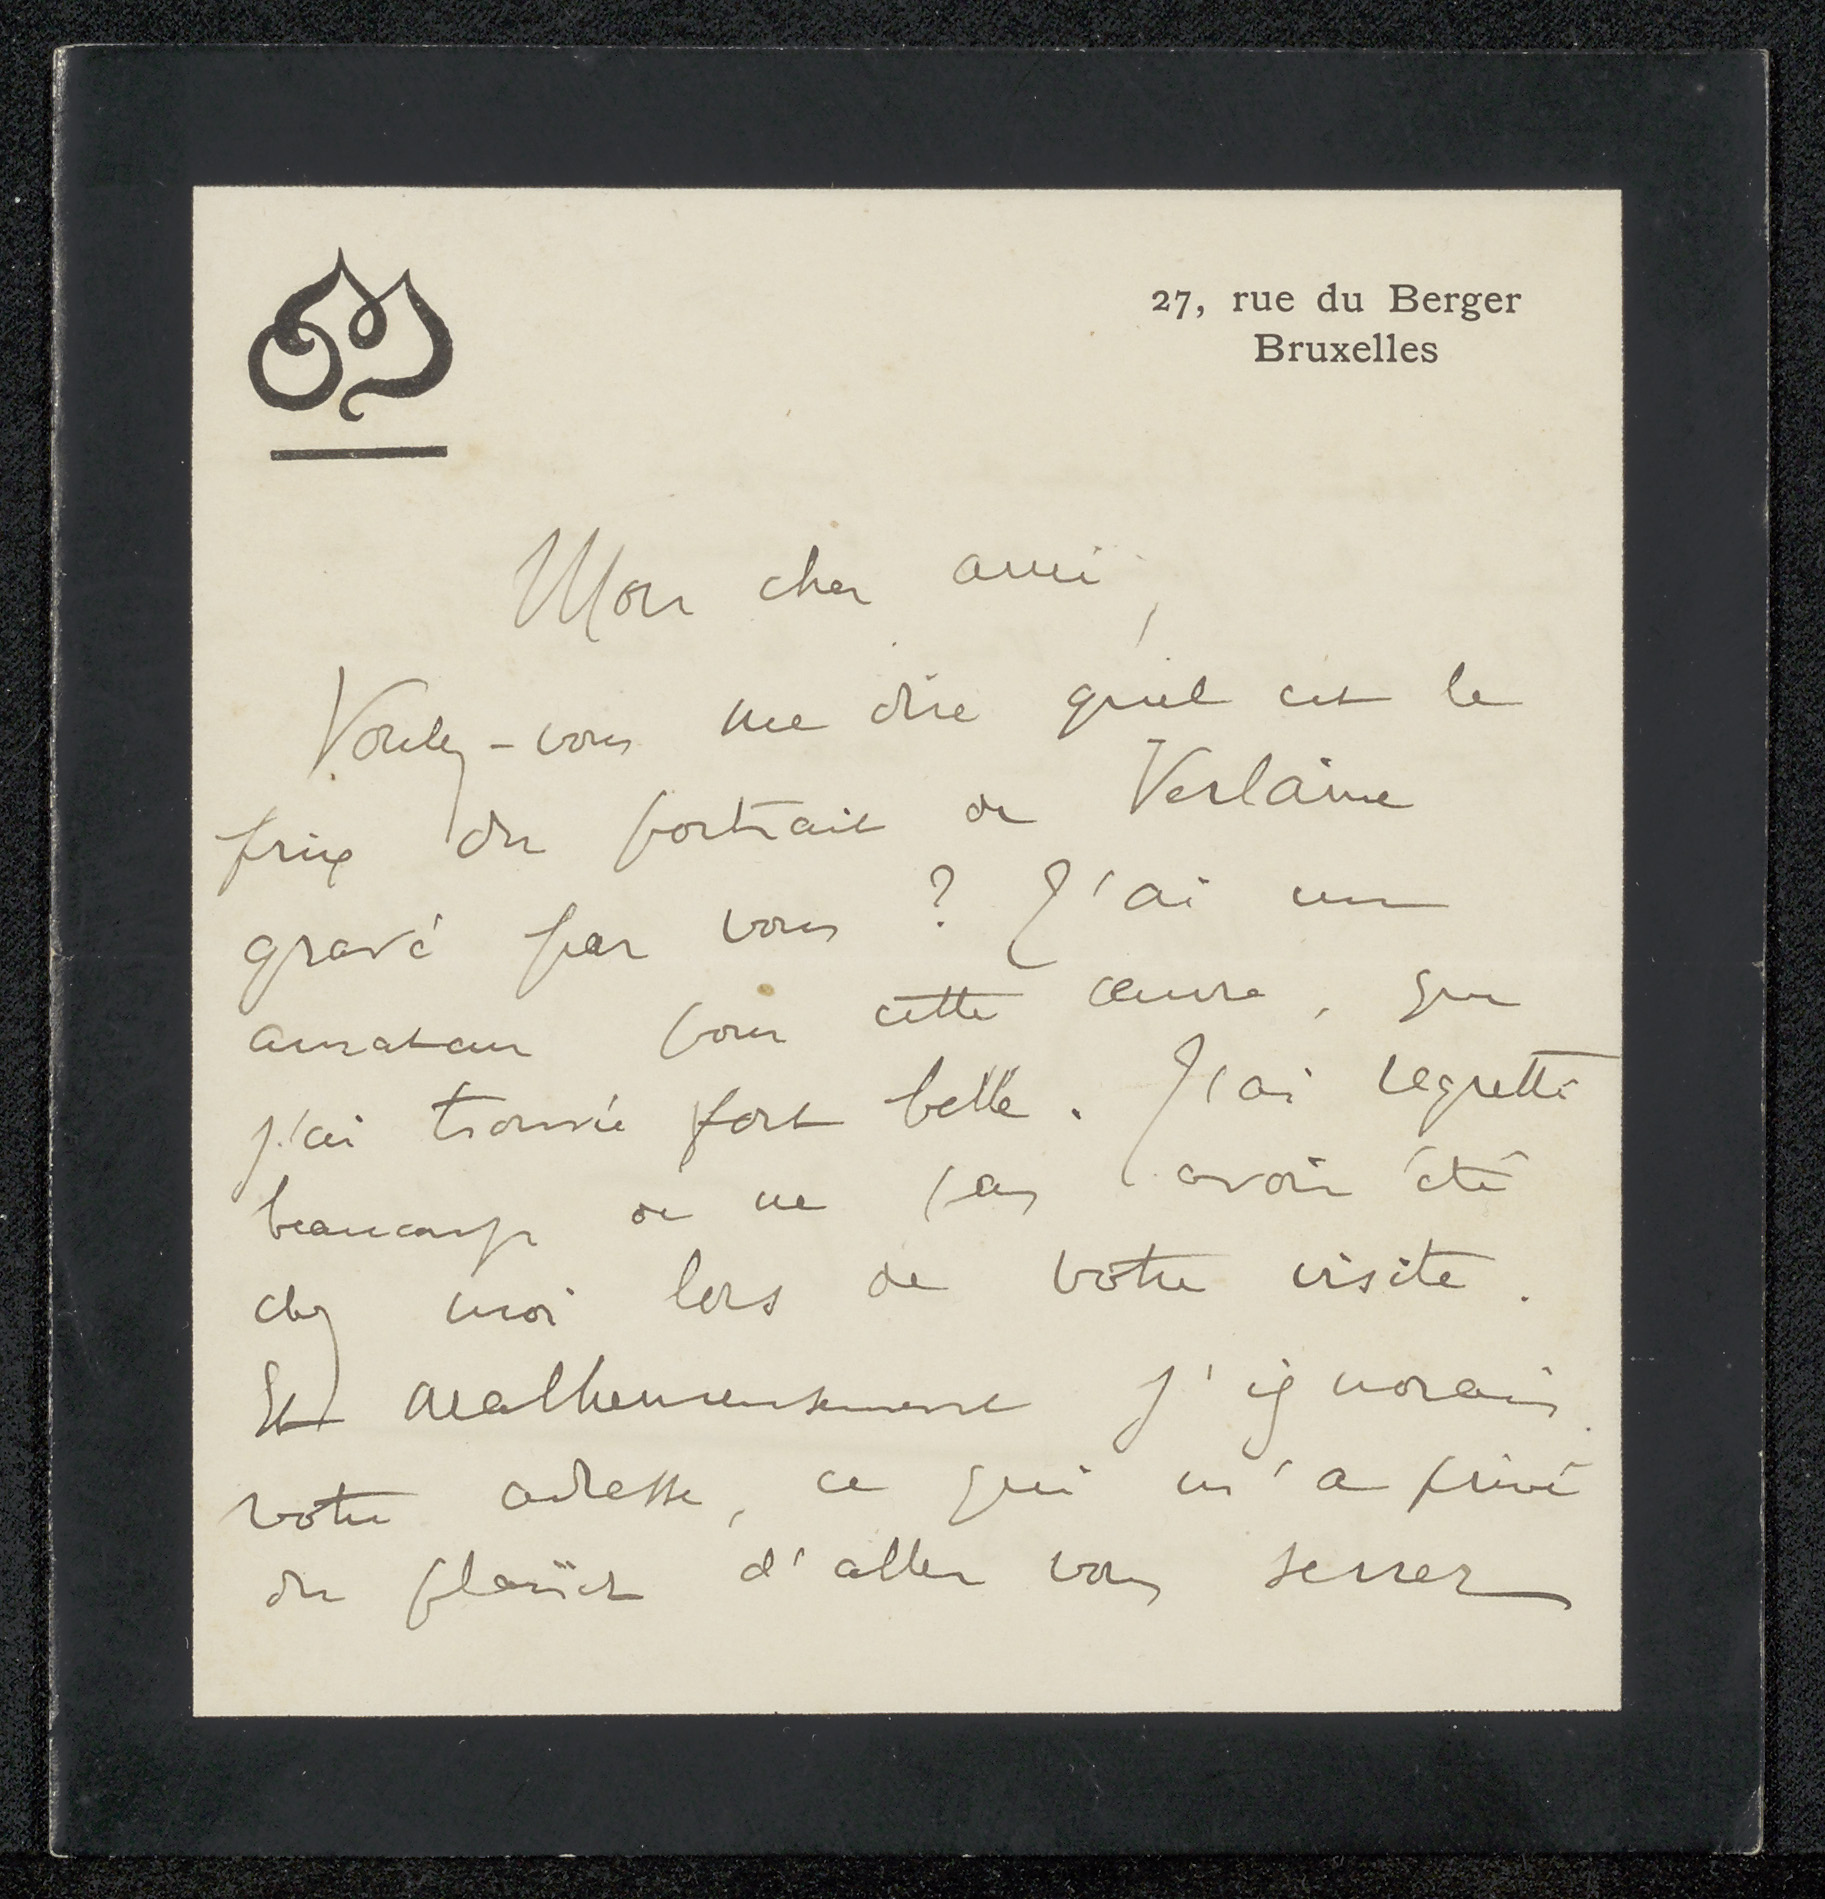 27, rue du Berger
Bruxelles
Mon cher ami,
Voulez-vous me dire quel est le
prix du portrait de Verlaine
gravé par vous ? J'ai un
amateur pour cette œuvre, que
j'ai trouvée fort belle. J'ai regretté
beaucoup de ne pas avoir été
chez moi lors de votre visite.
Et malheureusement j'ignorais
votre adresse, ce qui m'a privé
du plaisir d'aller vous serrer